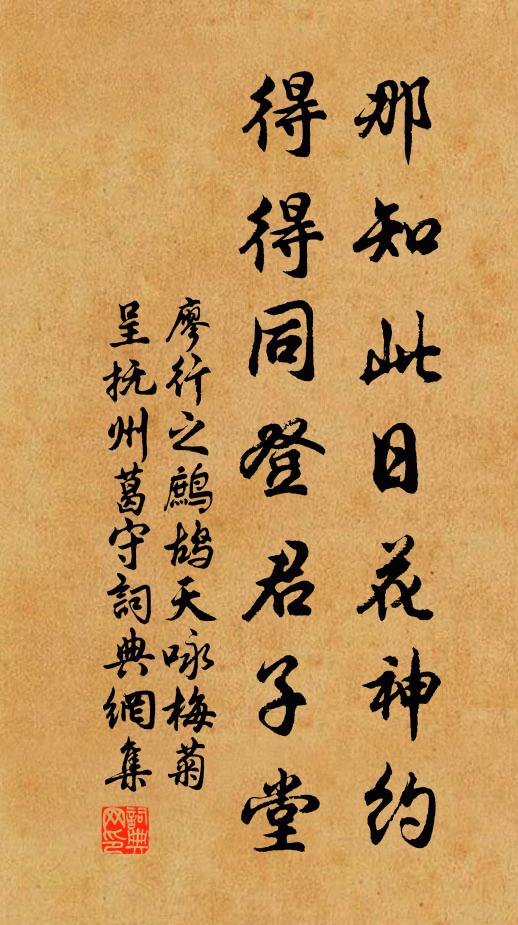 那知此日花神约
得得同登君子堂
廖行之鷓鴣天咏梅菊
呈抚州葛守詞典網集
詞典网印